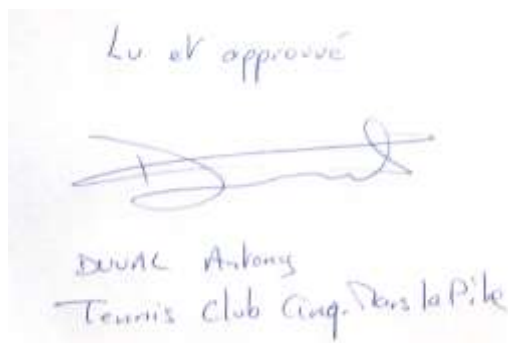 Lu et approuvé
DUVAL Antony
Tennis Club Cinq-Mars la Pile